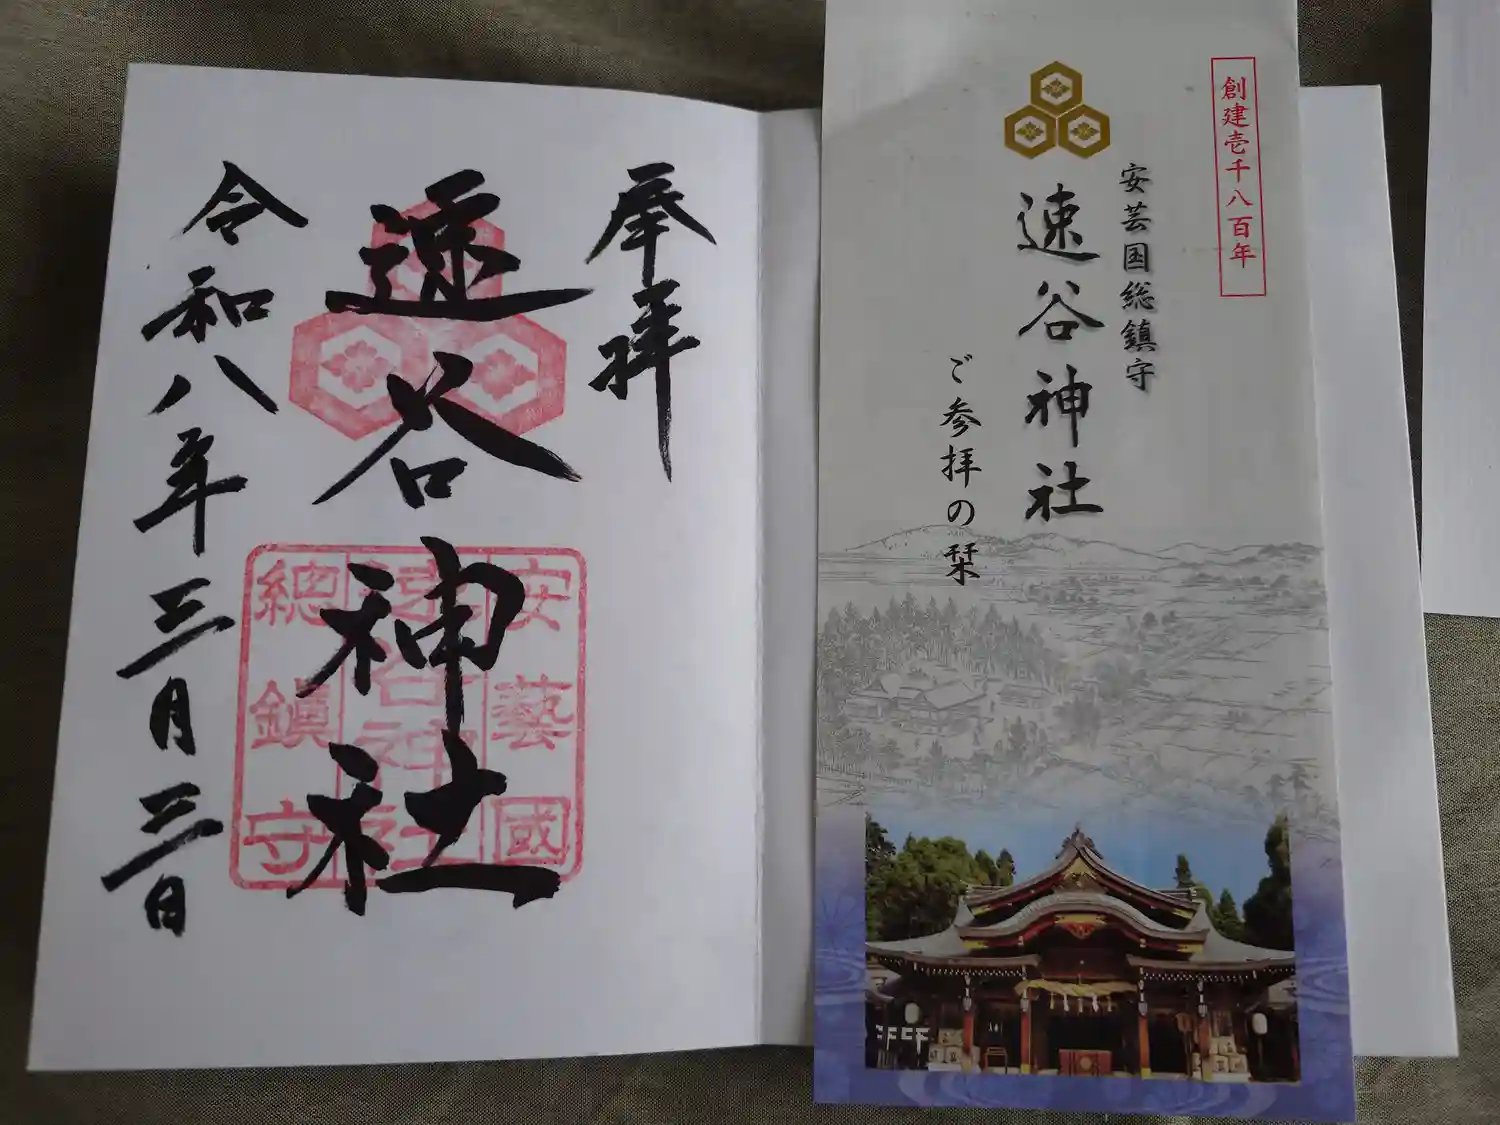 奉拝
速谷神社
令和八年三月三日
安藝國
速谷神社
總鎮守
創建壱千八百年
安芸国総鎮守
速谷神社
ご参拝の栞